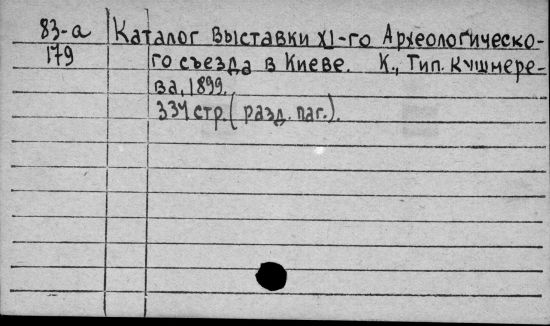 83-а Каталог выставки XI-го Археологическо-
179 го съезда в Киеве. К., Тип. Кушнере-
ва, 1899.
334 стр. (разд. паг.).